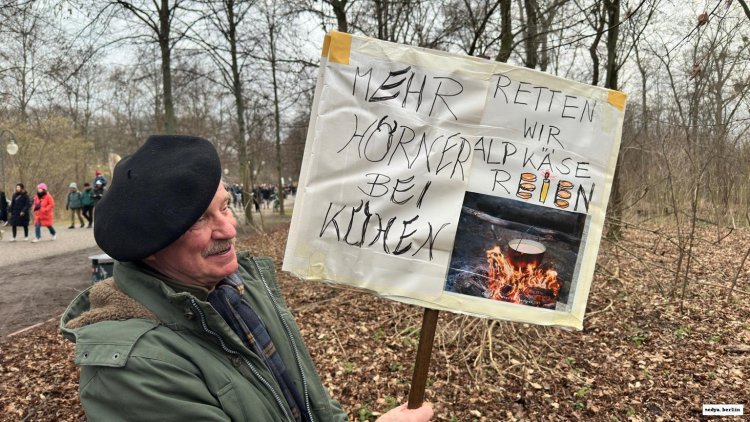 MEHR
HÖRNER
BEI
KÜHEN
RETTEN
WIR
ALPKÄSE
REIEN
sedya.berlin